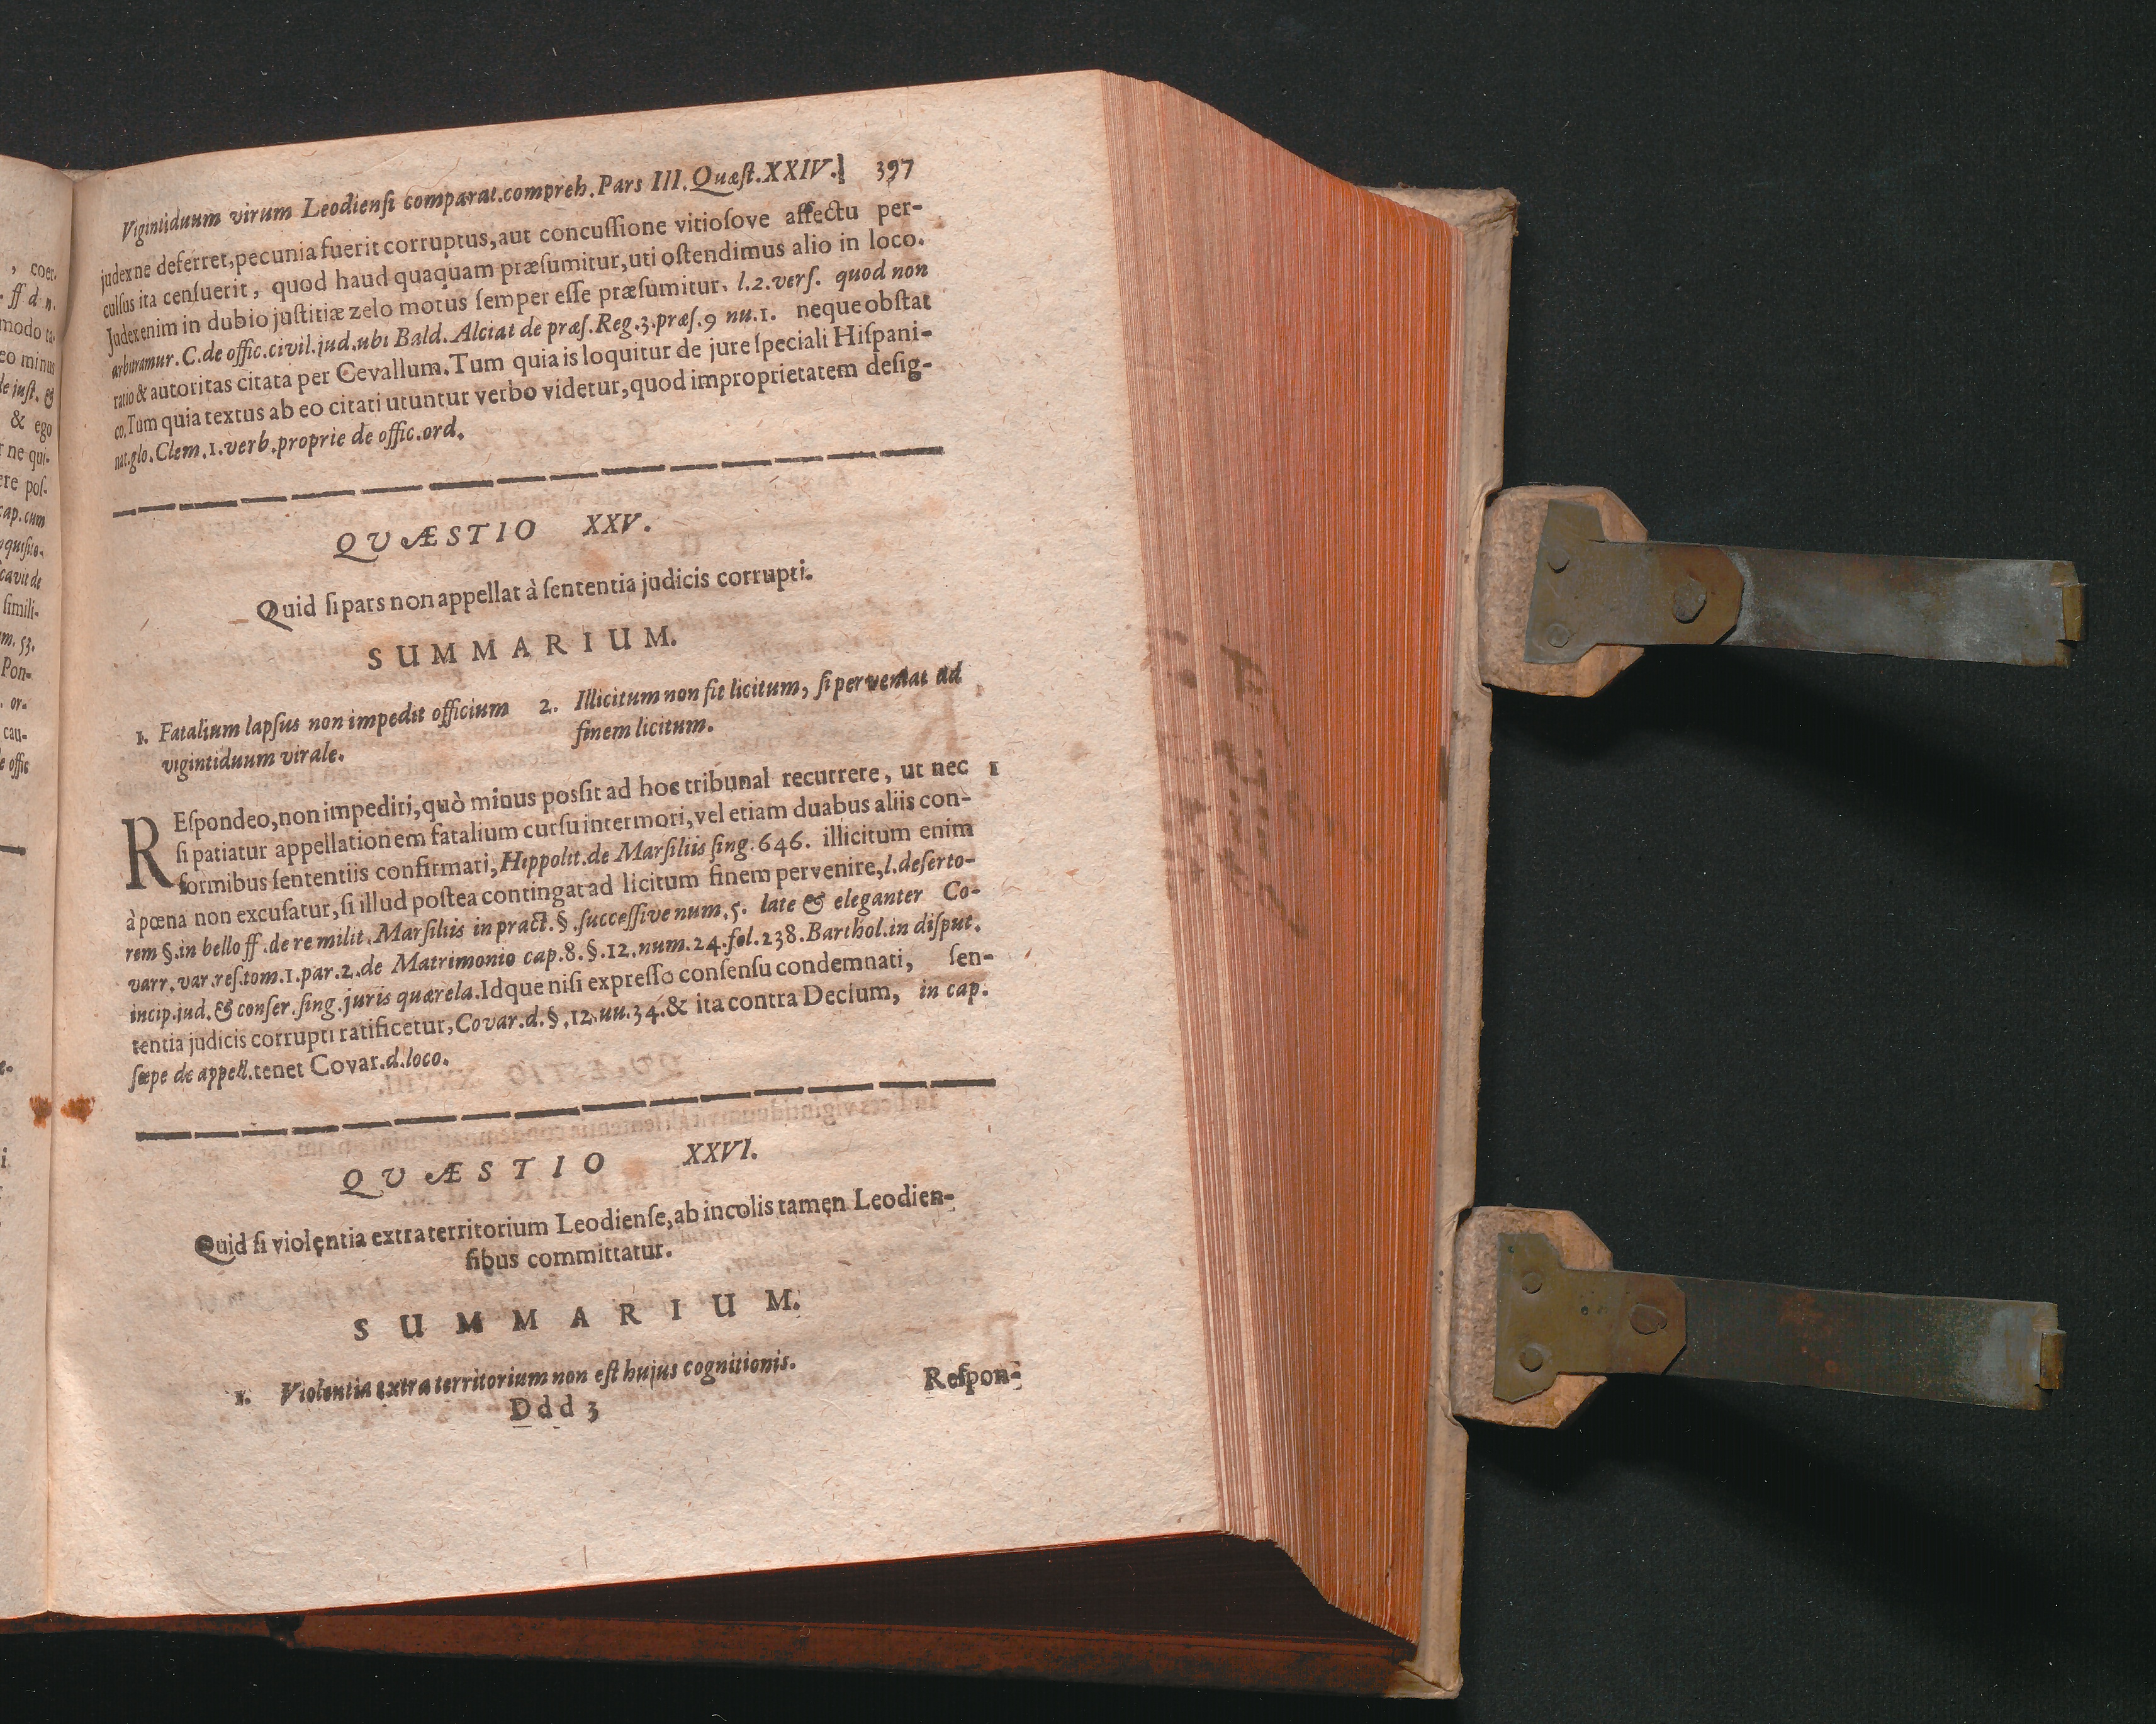 Vigintiduum virum Leodiensi comparat.compreh.Pars III.Quæst.XXIV. 397
judexne deferret,pecunia fuerit corruptus,aut concussione vitiosove affectu per-
culsus ita censuerit, quod haud quaquam præsumitur,uti ostendimus alio in loco.
Judex enim in dubio justitiæ zelo motus semper esse præsumitur. l.2.vers. quod non
arbitramur.C.de offic.civil.jud.ubi Bald.Alciat de præs.Reg.3.præs.9 nu.1. neque obstat
ratio & autoritas citata per Cevallum.Tum quia is loquitur de jure speciali Hispani-
co.Tum quia textus ab eo citati utuntur verbo videtur,quod improprietatem desig-
nat.glo.Clem.1.verb.proprie de offic.ord.
QVÆSTIO XXV.
Quid si pars non appellat à sententia judicis corrupti.
SUMMARIUM.
1. Fatalium lapsus non impedit officium
vigintiduum virale.
2. Illicitum non fit licitum, si perveniat ad
finem licitum.
REspondeo,non impediri,quò minus possit ad hoc tribunal recurrere, ut nec 1
si patiatur appellationem fatalium cursu intermori,vel etiam duabus aliis con-
formibus sententiis confirmari,Hippolit.de Marsiliis sing.646. illicitum enim
à pœna non excusatur,si illud postea contingat ad licitum finem pervenire,l.deserto-
rem §.in bello ff.de re milit.Marsiliis in pract.§.successive num.5. late & eleganter Co-
varr.var.res.tom.1.par.2.de Matrimonio cap.8.§.12.num.24.fol.238.Barthol.in disput.
incip.jud.& conser.sing.juris quærela.Idque nisi expresso consensu condemnati, sen-
tentia judicis corrupti ratificetur,Covar.d.§.12.uu.34.& ita contra Decium, in cap.
sæpe de appell.tenet Covar.d.loco.
QVÆSTIO XXVI.
Quid si violentia extra territorium Leodiense,ab incolis tamen Leodien-
sibus committatur.
SUMMARIUM.
1. Violentia extra territorium non est hujus cognitionis.
Ddd 3 Respon-